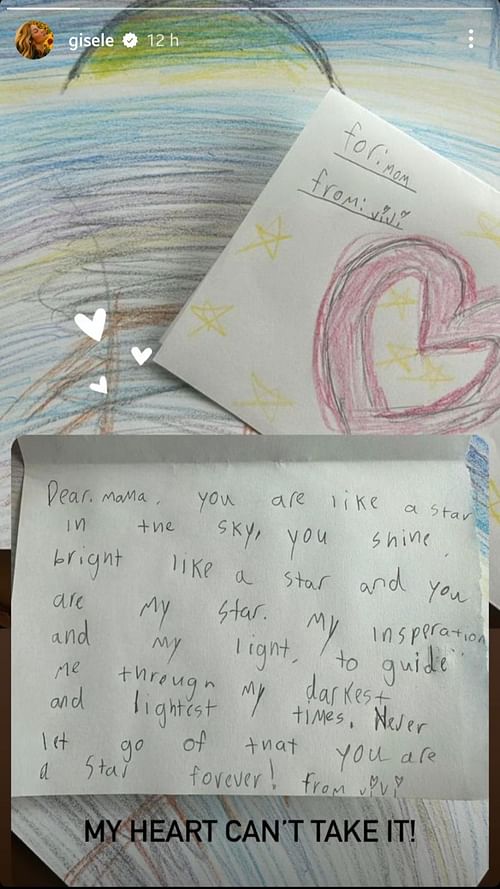 gisele 12 h
for: mom
from: vivi
Dear. mama. you are like a star
in the sky, you shine
bright like a star and you
are my star. my insperation
and my light, to guide
me through my darkest
and lightest times. Never
let go of that you are
a star forever! from vivi
MY HEART CAN'T TAKE IT!